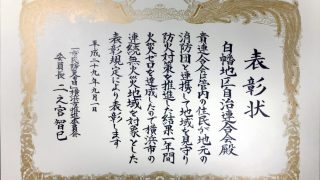 表彰状
白幡地区自治連合会殿
貴連合会は管内の住民が地元の
消防団と連携して地域を見守り
防火対策を推進した結果一年間
火災ゼロを達成したので横浜市の
連続無火災地域を対象とした
表彰規定により表彰します
平成二十九年九月一日
委員長 二之宮智已